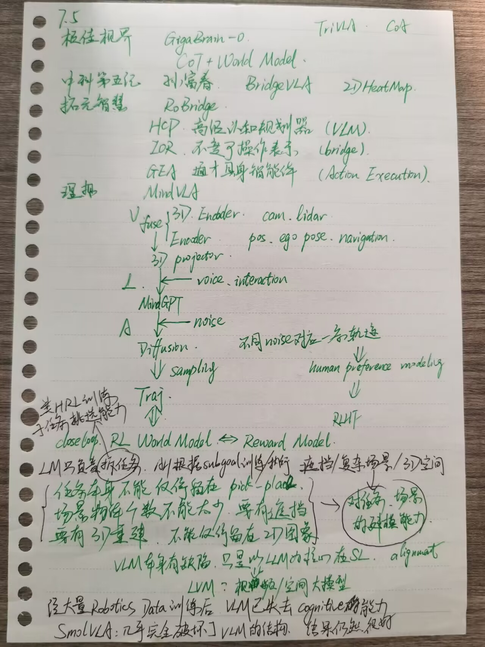 7.5
TriVLA CoA
极佳视界 GigaBrain-0
CoT + World Model.
中科第五纪 刘富春 BridgeVLA 2D HeatMap
拓元智慧 RoBridge
HCP 高级认知规划器 (VLM).
IOR 不变的操作表示, (bridge)
GEA 通才具身智能体 (Action Execution).
理想 MindVLA
V fuse 3D Encoder. cam. lidar
Encoder pos. ego pose. navigation.
3D projector
L. voice. interaction
MindGPT
A noise
Diffusion 不同noise对应一条轨迹
sampling human preference modeling
Traj RLHF
类HRL训练
子任务挑选能力
closeloop RL World Model ⇔ Reward Model.
LM只负责拆任务. 根据subgoal训练执行 遮挡/复杂场景/3D空间
任务本身不能仅停留在 pick-place
场景物体个数不能太少, 要有遮挡
要有3D重建, 不能仅停留在2D图象
对任务、场景的建模能力
VLM本身有缺陷, 只是以LLM为核心在SL. alignment
LVM? 视频/空间大模型
经大量Robotics Data训练后 VLM已失去cognitive的能力
SmolVLA: 几乎完全破坏了VLM的结构. 结果仍然很好